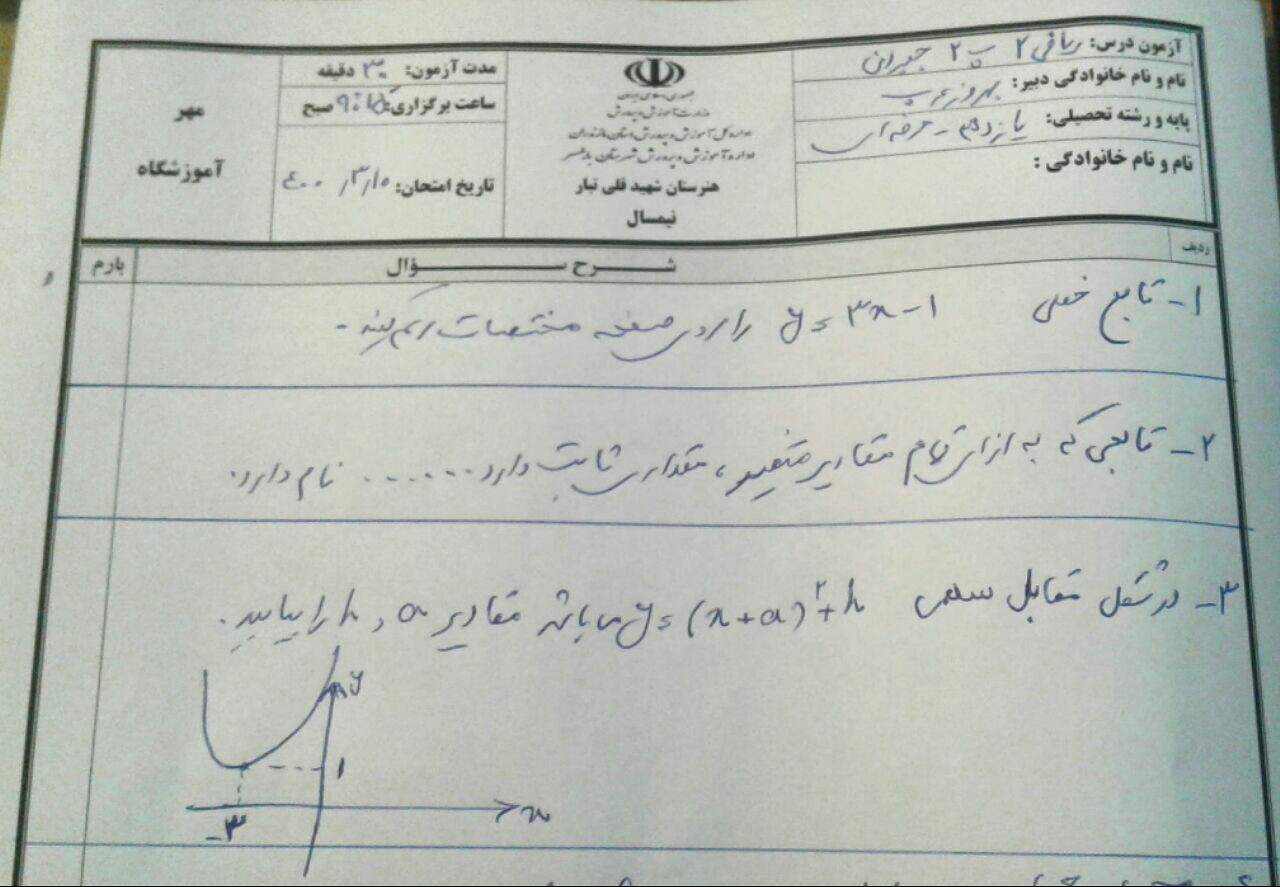 آزمون درس: ریاضی ۲ پ ۲ جبرانی
نام و نام خانوادگی دبیر: بهروز عرب
پایه و رشته تحصیلی: یازدهم - حرفه ای
نام و نام خانوادگی :
جمهوری اسلامی ایران
وزارت آموزش و پرورش
اداره کل آموزش و پرورش استان مازندران
اداره آموزش و پرورش شهرستان بابلسر
هنرستان شهید قلی تبار
نیمسال
مدت آزمون: ۳۰ دقیقه
ساعت برگزاری: صبح
تاریخ امتحان: ۴۰۰/۳/۱۰
مهر
آموزشگاه
ردیف
شرح سؤال
بارم
۱- تابع خطی y = ۳x - ۱ را روی صفحه مختصات رسم کنید.
۲- تابعی که به ازای تمام مقادیر متغیر، مقداری ثابت دارد ....... نام دارد.
۳- در شکل مقابل سهمی y = (x + a)^۲ + h می باشد مقادیر a و h را بیابید.
y
۱
x
-۳